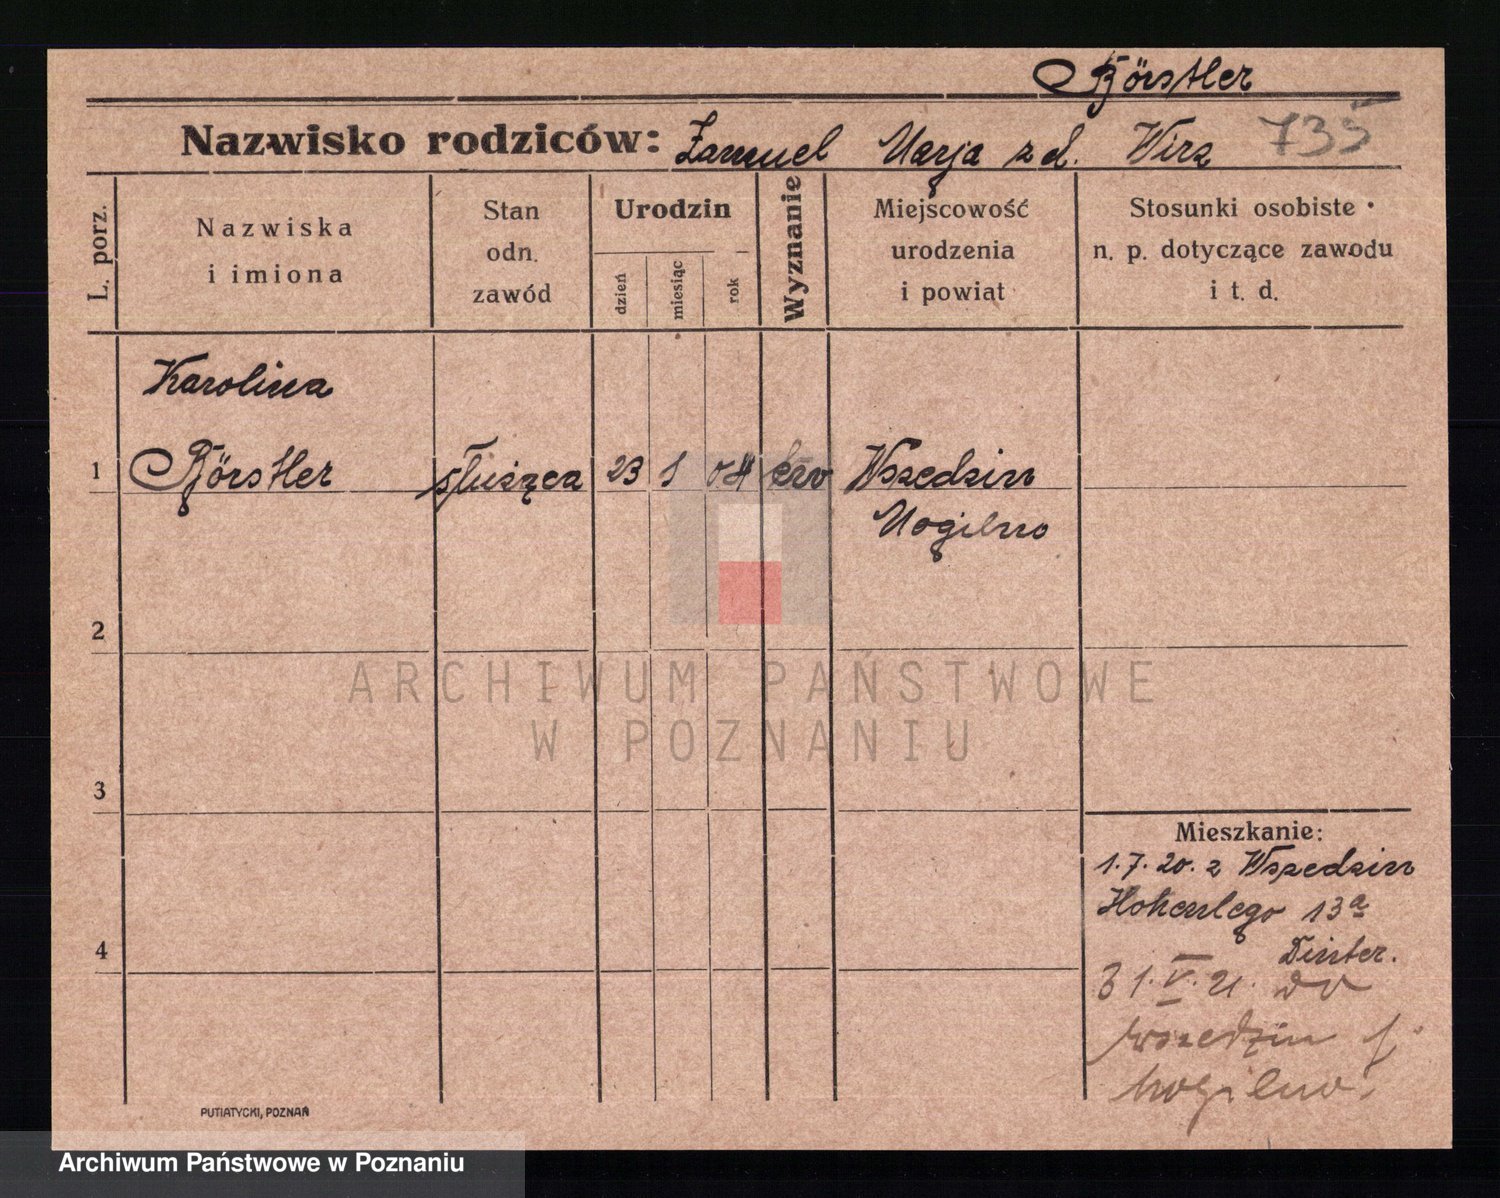 Förstler
Nazwisko rodziców: Samuel Marja z d. Wirz 735
L. porz.
Nazwiska
i imiona
Stan
odn.
zawód
Urodzin
dzień
miesiąc
rok
Wyznanie
Miejscowość
urodzenia
i powiat
Stosunki osobiste
n. p. dotyczące zawodu
i t. d.
Karolina
1 Förstler służąca 23 1 04 ew Wszedzin
Mogilno
2
ARCHIWUM PAŃSTWOWE
W POZNANIU
3
Mieszkanie:
1.7.20. z Wszedzin
Hohenlego 13a
4
Tinter.
31.V.21. do
Wszedzin
Mogilno.
PUTIATYCKI, POZNAŃ
Archiwum Państwowe w Poznaniu